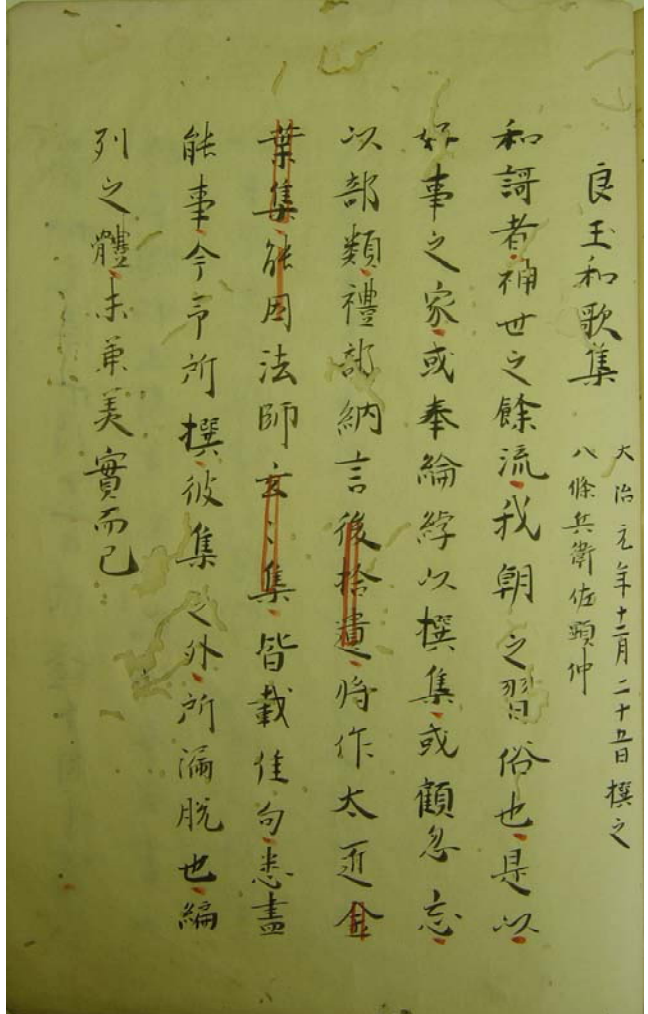 良玉和歌集
大治元年十二月二十五日撰之
八條兵衛佐顕仲
和謌者神世之餘流我朝之習俗也是以
好事之家或奉綸綍以撰集或顧忽忘
以部類禮部納言後拾遺将作大匠金
葉集能因法師玄〻集皆載佳句悉盡
能事今予所撰彼集之外所漏脱也編
列之體未兼美實而已